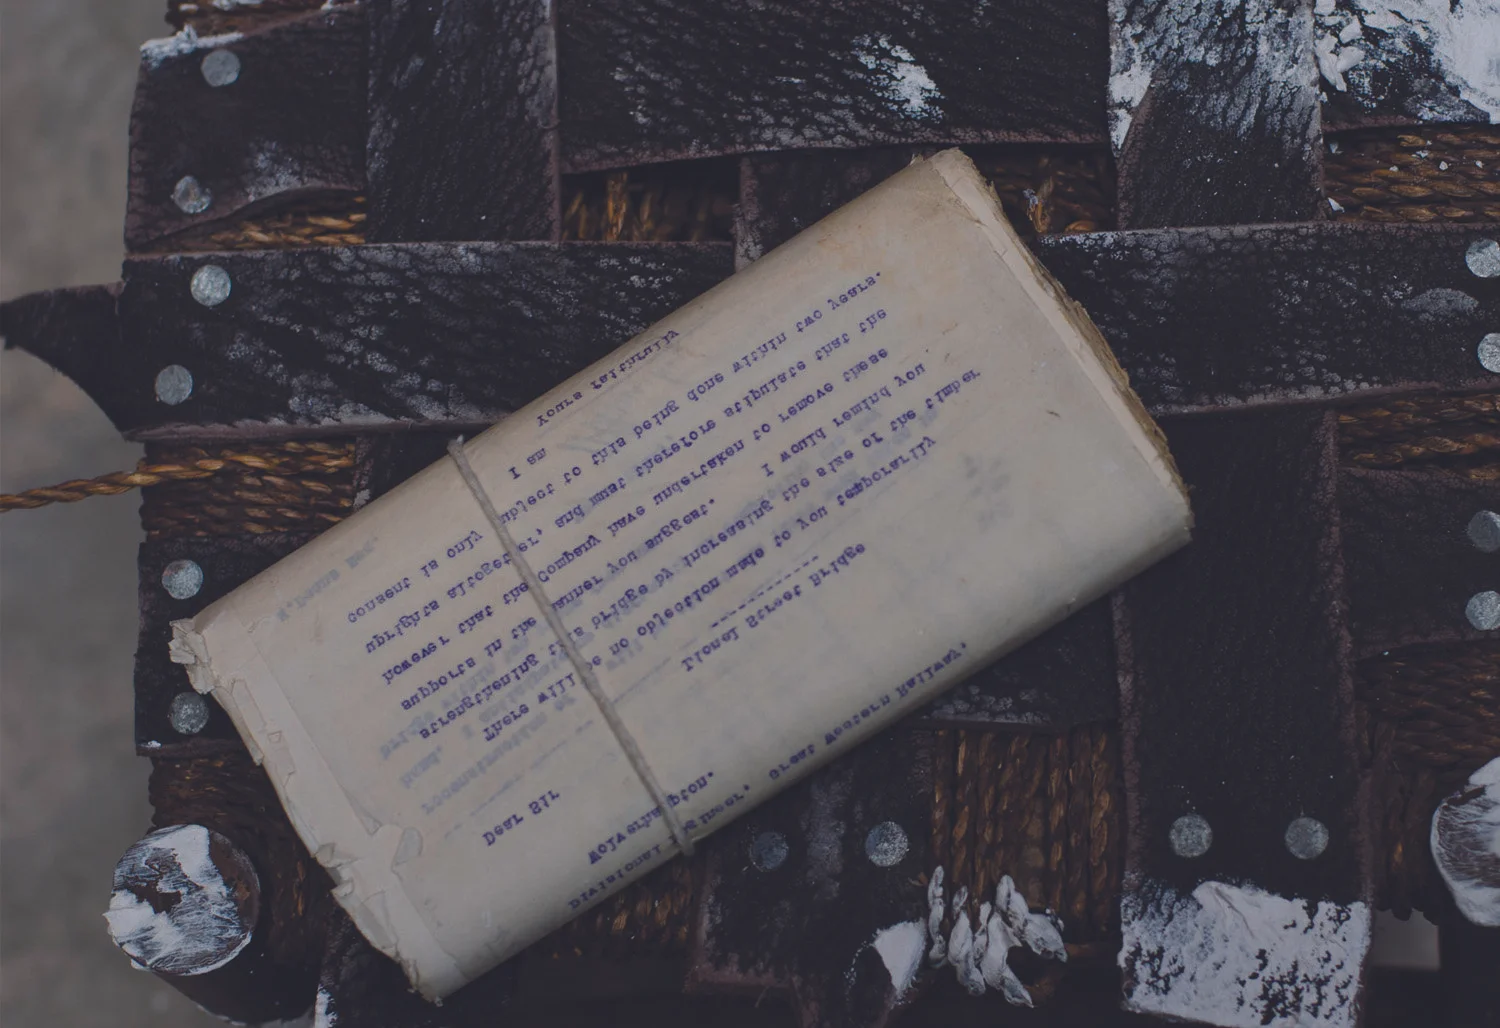 Divisional Engineer, Great Western Railway,
Wolverhampton.
Dear Sir
Lionel Street Bridge
There will be no objection made to you temporarily
strengthening this bridge by increasing the size of the timber
supports in the manner you suggest. I would remind you
however that the Company have undertaken to remove these
uprights altogether, and must therefore stipulate that the
consent is only subject to this being done within two years.
I am
Yours faithfully